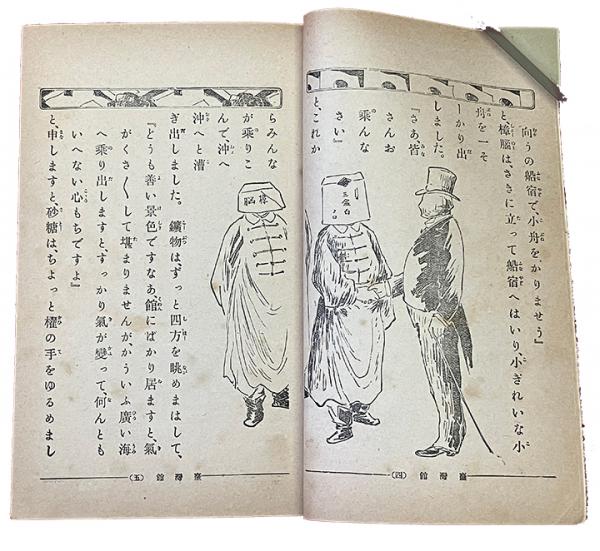 『向うの船宿で小舟をかりませう』
と、樟腦は、さきに立って船宿へはいり小ぎれいな小
舟を一そ
ーかり出
しました。
『さあ皆
さんお
乗んな
さい』
と、これか
三盆白
臺灣館 (四)
らみんな
が乗りこ
んで沖へ
沖へと漕
ぎ出しました。 鑛物は、ずっと四方を眺めまはして、
『どうも善い景色ですなあ館にばかり居ますと、氣
がくさ〱して堪まりませんがかういふ廣い海
へ乗り出しますと、すっかり氣が變って、何んとも
いへない心もちですよ』
と、申しますと、砂糖は、ちょっと櫂の手をゆるめまし
樟腦
臺灣館 (五)